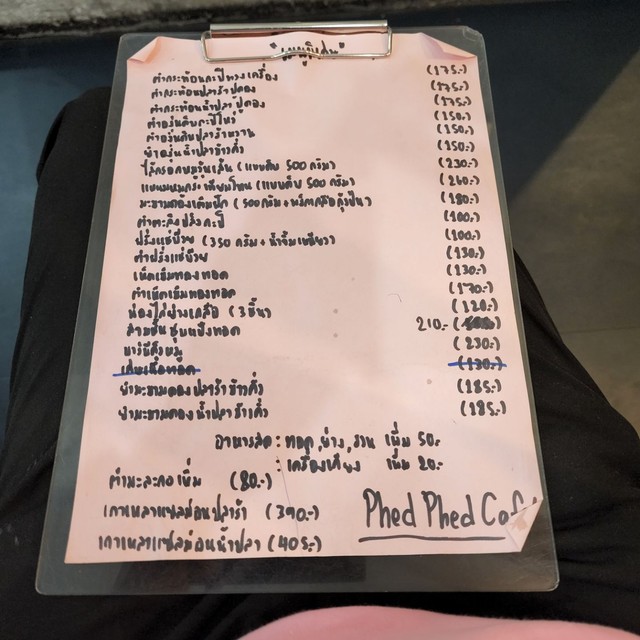 "เมนูพิเศษ"
ตำกระท้อนกะปิทรงเครื่อง (175.-)
ตำกระท้อนปลาร้าปูดอง (175.-)
ตำกระท้อนน้ำปลาปูดอง (175.-)
ตำองุ่นดิบกะปิโหว่ (150.-)
ตำองุ่นดิบปลาร้าหวาน (150.-)
ยำองุ่นน้ำปลาข้าวคั่ว (150.-)
ไส้กรอกหมูวุ้นเส้น (แบบดิบ 500 กรัม) (230.-)
แหนมหมูกระเทียมโทน (แบบดิบ 500 กรัม) (260.-)
มะขามดองเต็มฝัก (500 กรัม + พริกเกลือกุ้งป่น) (180.-)
ตำตะลิงปลิงกะปิ (100.-)
ฝรั่งแช่บ๊วย (350 กรัม + น้ำจิ้มเหนียว) (100.-)
ตำฝรั่งแช่บ๊วย (130.-)
เห็ดเข็มทองทอด (130.-)
ตำเห็ดเข็มทองทอด (170.-)
น่องไก่ย่างเกลือ (3 ชิ้น) (120.-)
สามชั้นชุบแป้งทอด 210.-
บาร์บีคิวหมู (230.-)
(130.-)
ยำมะขามดองปลาร้าข้าวคั่ว (185.-)
ยำมะขามดองน้ำปลาข้าวคั่ว (185.-)
อาหารสด : ทอด, ย่าง, รวน เพิ่ม 50.-
: เครื่องเคียง เพิ่ม 20.-
ตำมะละกอเพิ่ม (80.-)
เกาเหลาแซลม่อนปลาร้า (390.-)
เกาเหลาแซลม่อนน้ำปลา (405.-)
Phed Phed